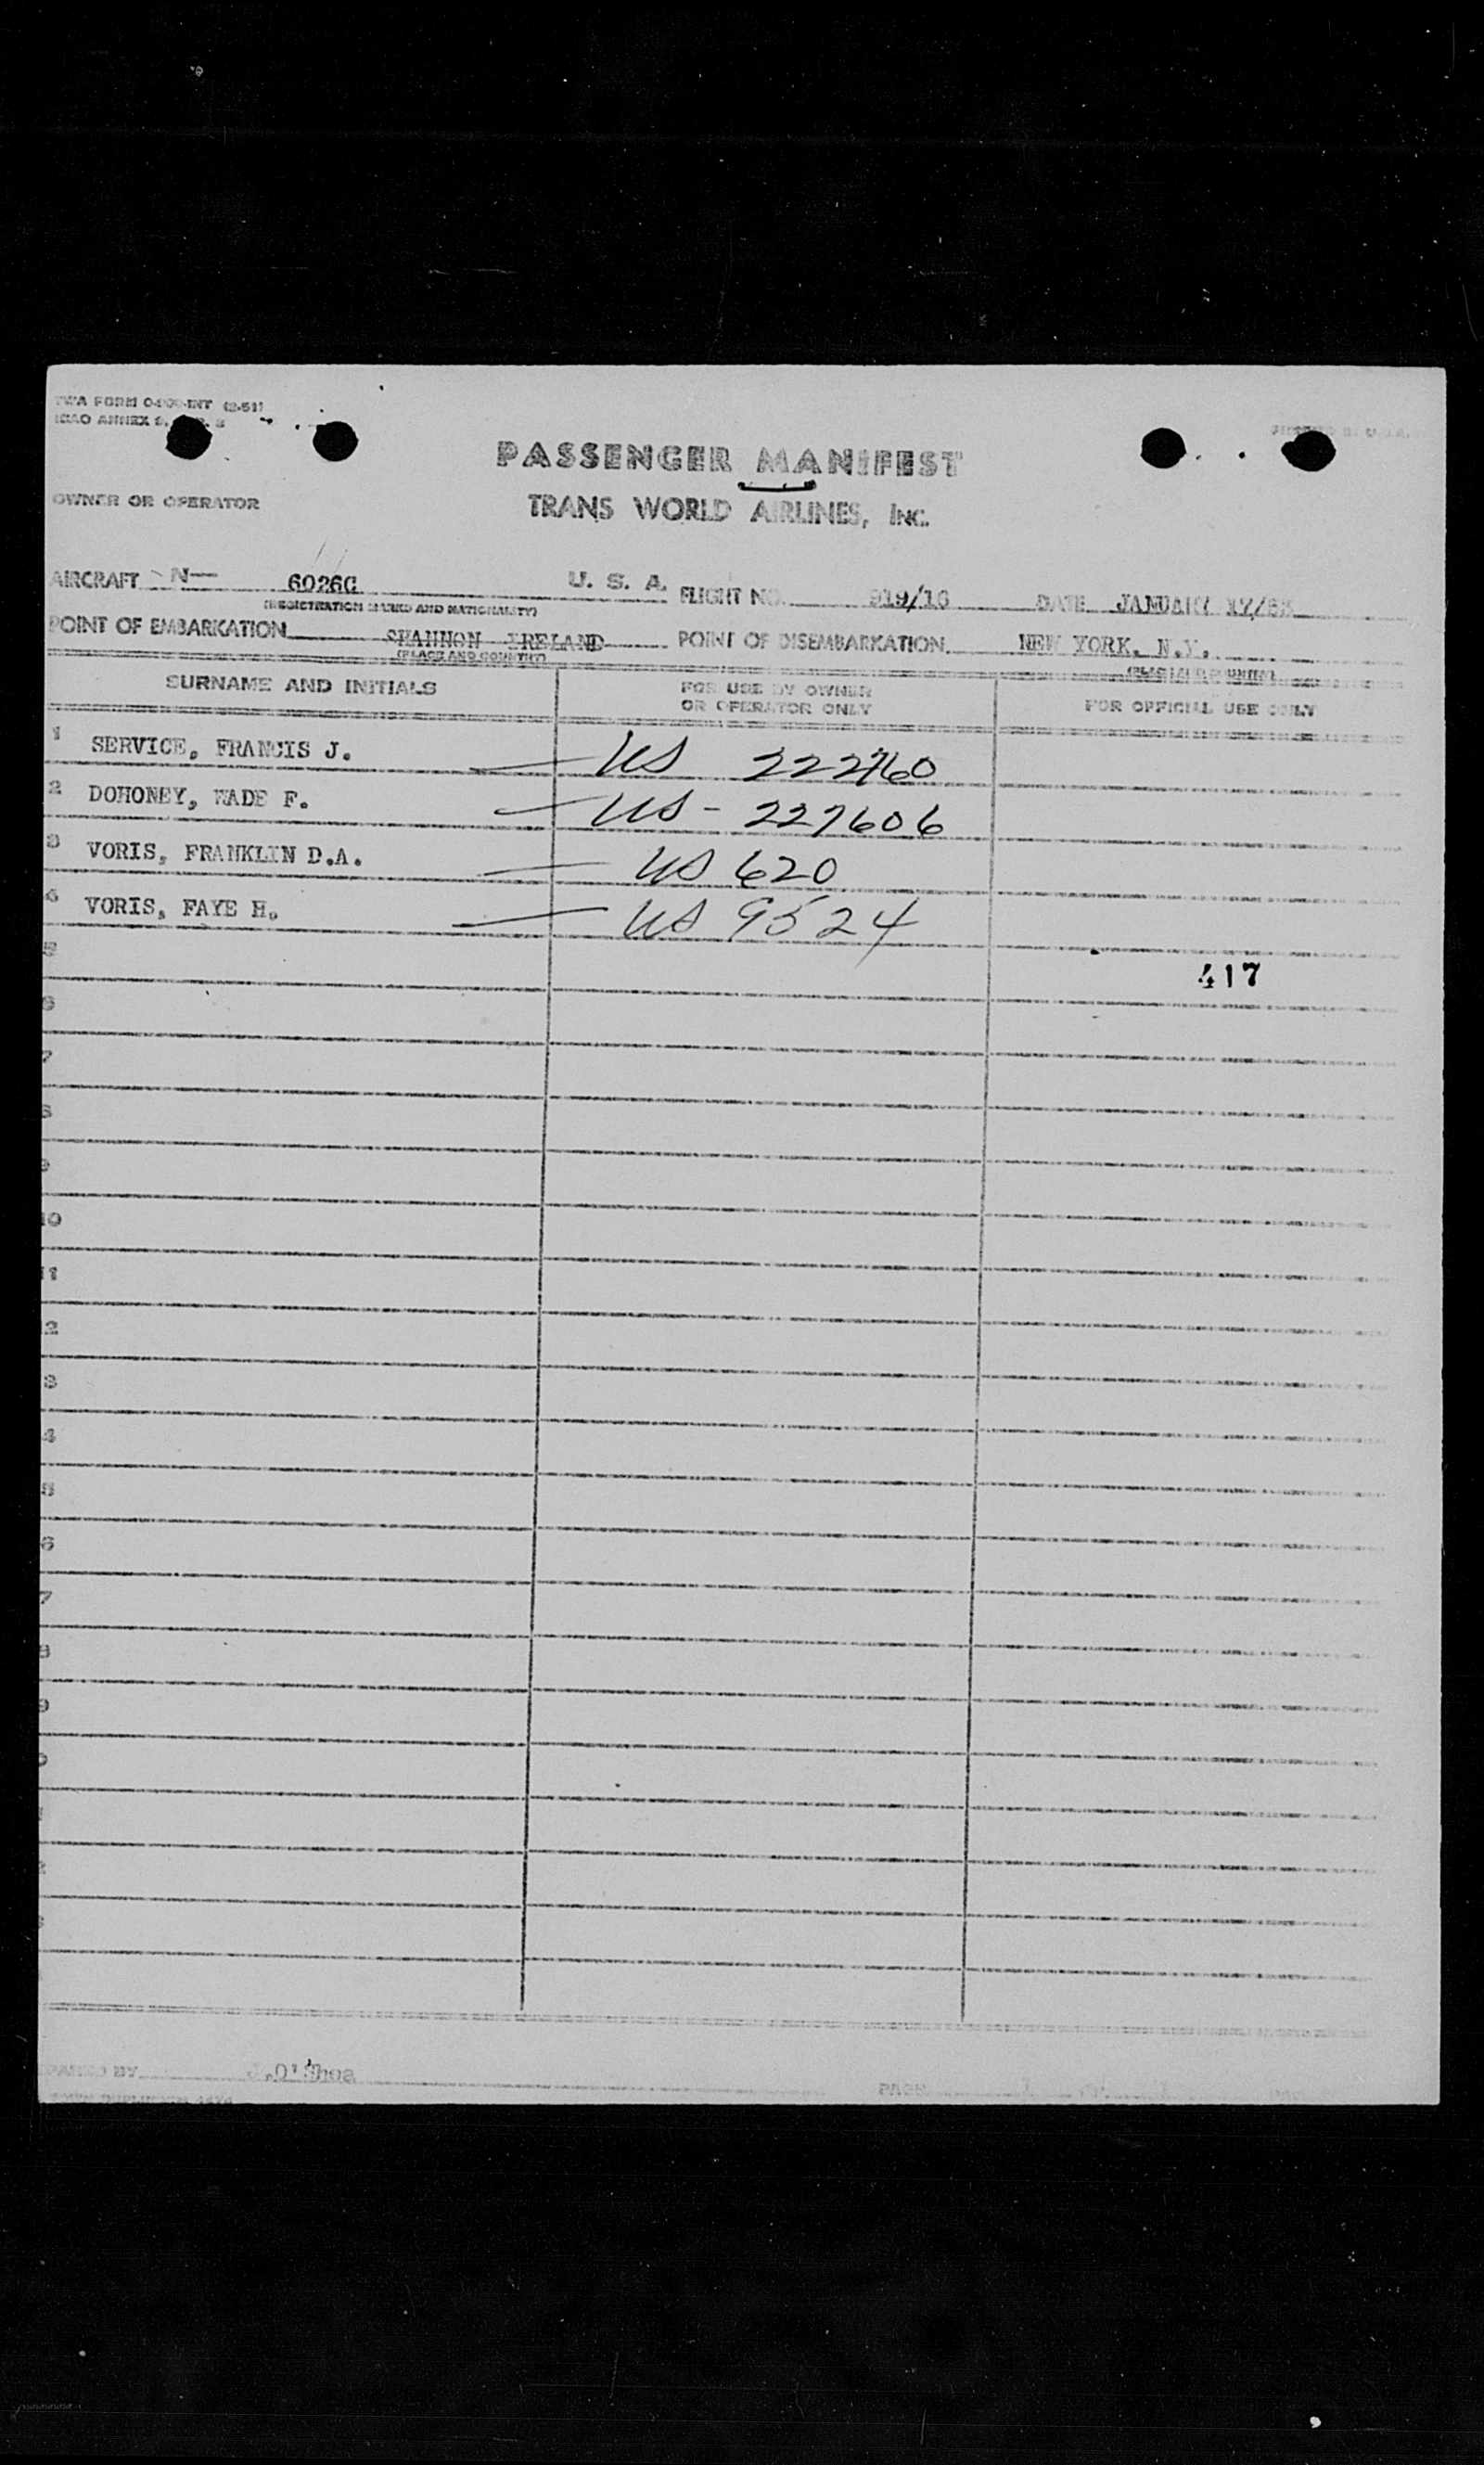 TWA FORM 0400-INT (2-51)
ICAO ANNEX 9,
PASSENGER MANIFEST
OWNER OR OPERATOR
TRANS WORLD AIRLINES, INC.
AIRCRAFT N— 6026C U. S. A. FLIGHT NO. 919/16 DATE JANUARY
(REGISTRATION MARKS AND NATIONALITY)
POINT OF EMBARKATION SHANNON IRELAND POINT OF DISEMBARKATION NEW YORK. N.Y.
(PLACE AND COUNTRY) (PLACE AND COUNTRY)
SURNAME AND INITIALS FOR USE BY OWNER OR OPERATOR ONLY FOR OFFICIAL USE ONLY
1 SERVICE, FRANCIS J. — US 222760
2 DOHONEY, WADE F. — US - 227606
3 VORIS, FRANKLIN D.A. — US 620
4 VORIS, FAYE H. — US 9524
5 417
6
7
8
9
10
11
12
3
4
5
6
7
8
9
BY J.O'Shea PAGE